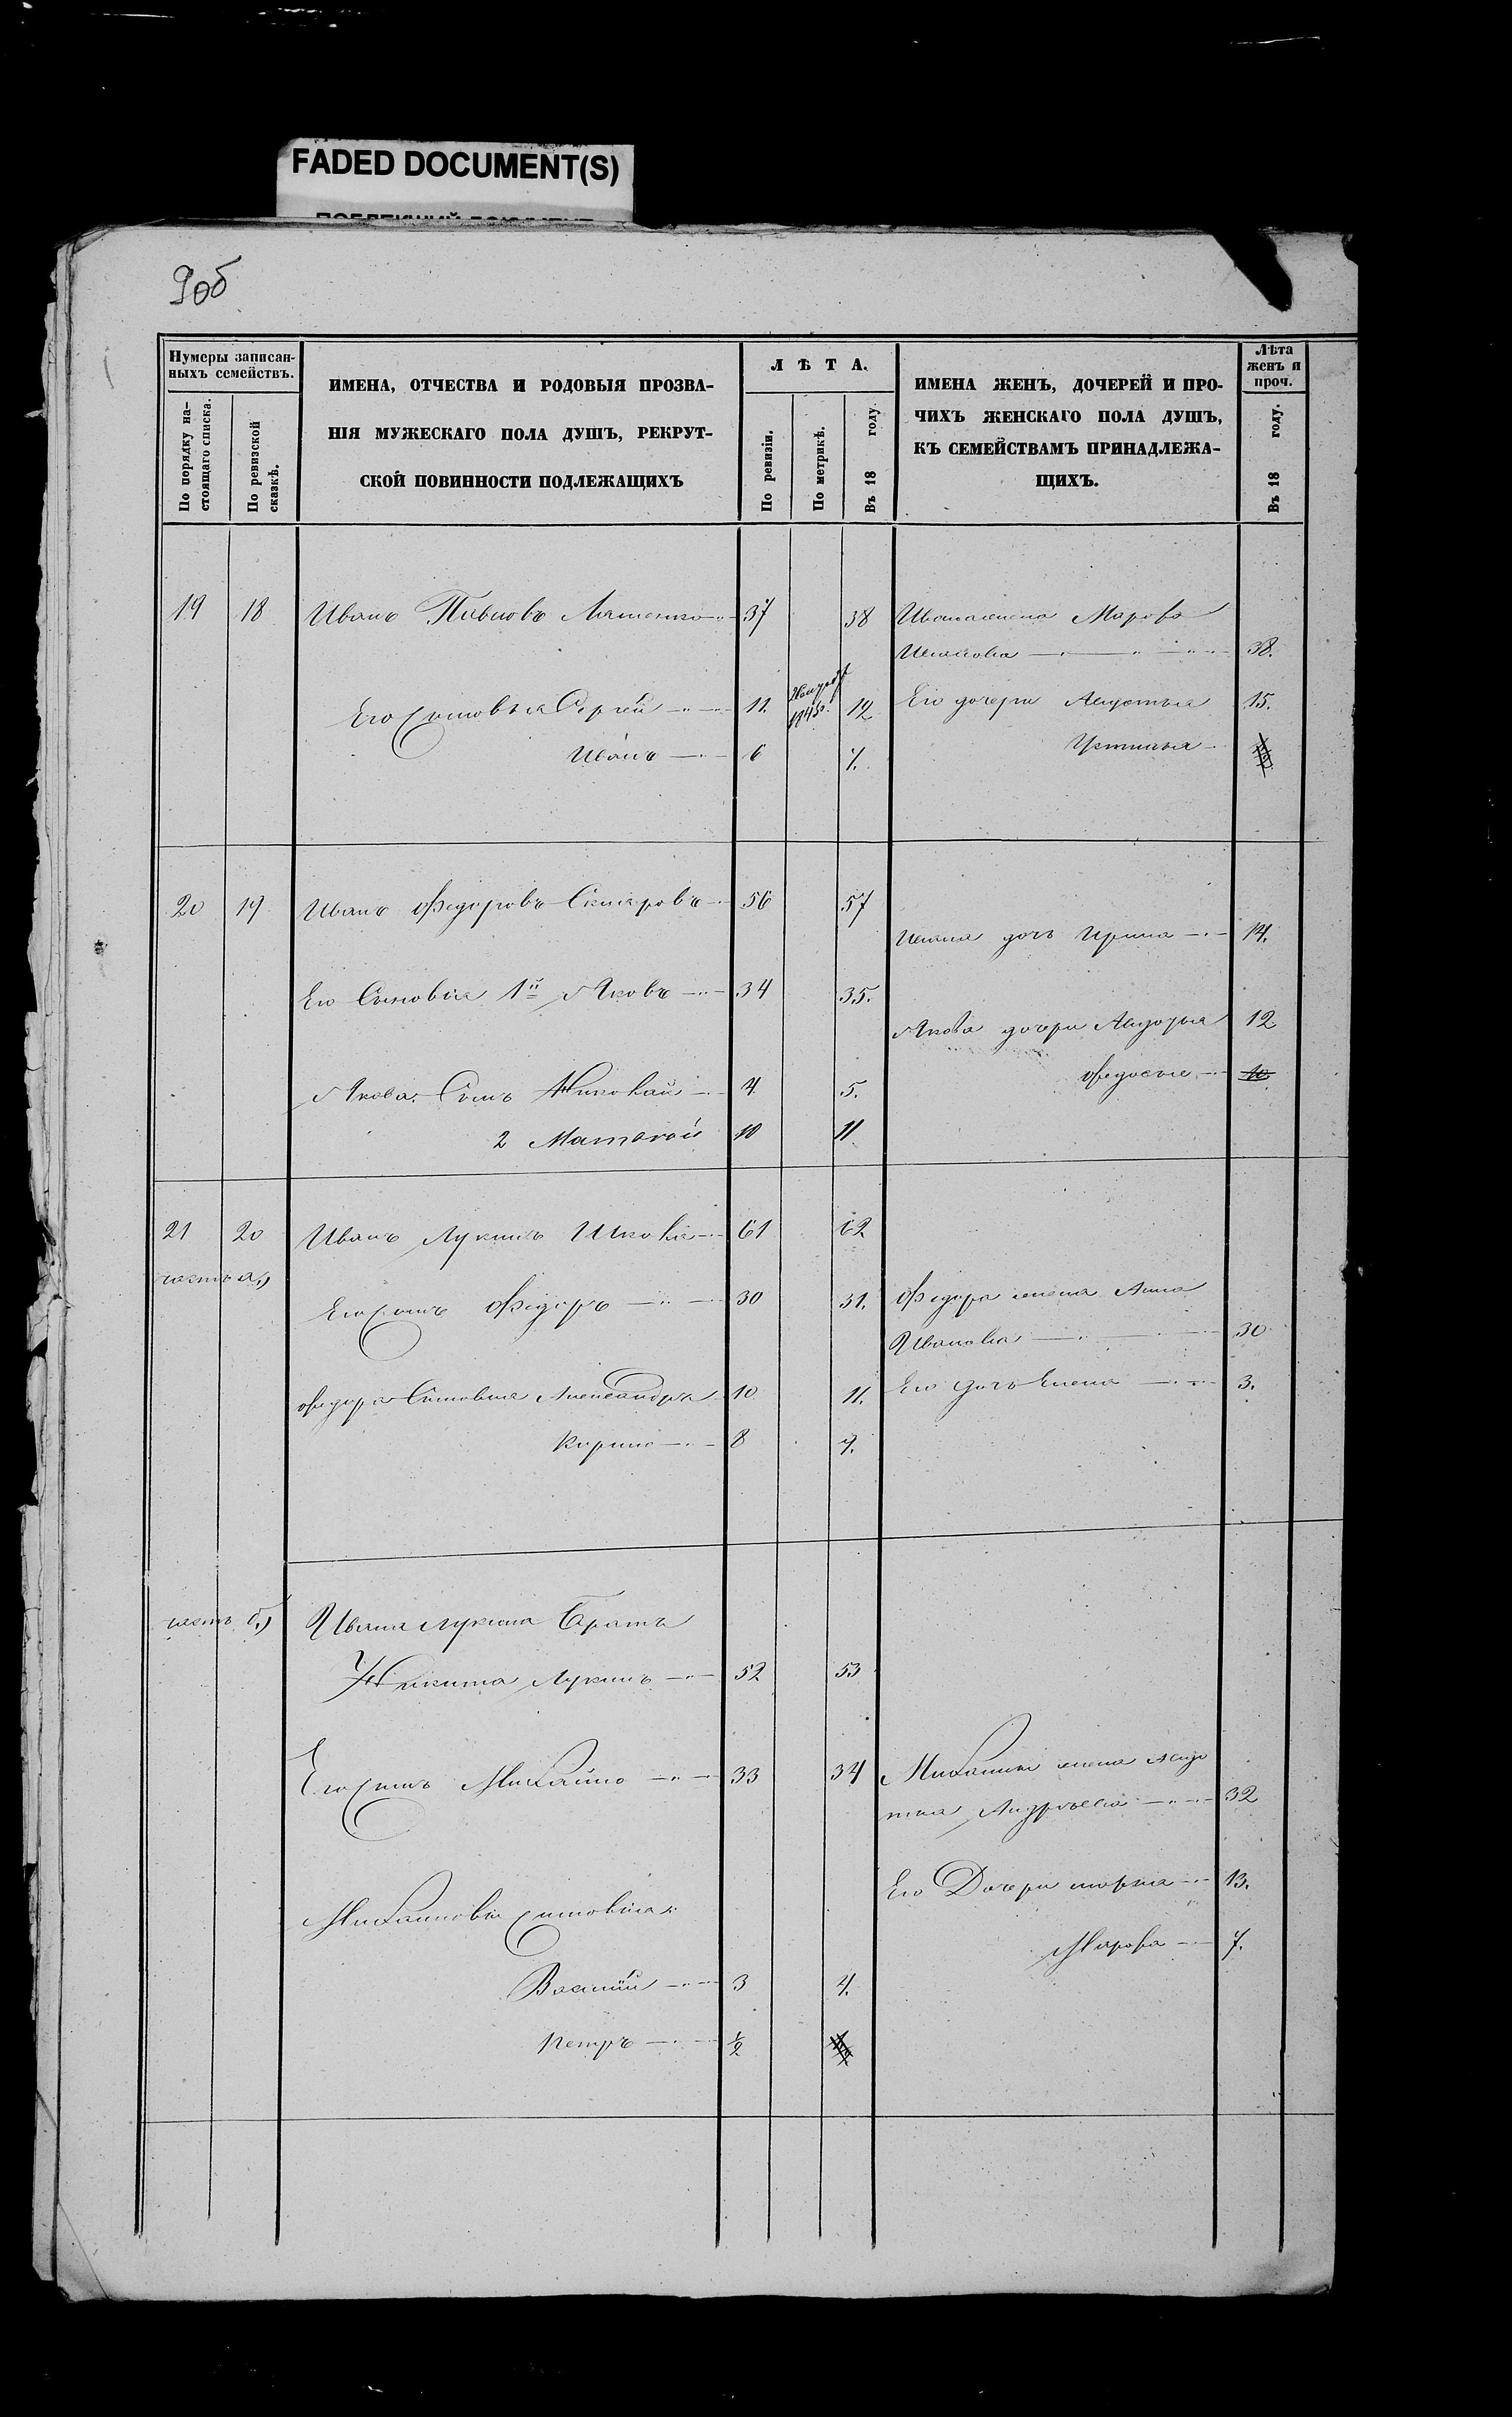 FADED DOCUMENT(S)
9об
Нумеры записан-
ныхъ семействъ.
По порядку на-
стоящаго списка.
По ревизской
сказкѣ.
ИМЕНА, ОТЧЕСТВА И РОДОВЫЯ ПРОЗВА-
НІЯ МУЖЕСКАГО ПОЛА ДУШЪ, РЕКРУТ-
СКОЙ ПОВИННОСТИ ПОДЛЕЖАЩИХЪ
ЛѢТА.
По ревизіи.
По метрикѣ.
Въ 18 году.
ИМЕНА ЖЕНЪ, ДОЧЕРЕЙ И ПРО-
ЧИХЪ ЖЕНСКАГО ПОЛА ДУШЪ,
КЪ СЕМЕЙСТВАМЪ ПРИНАДЛЕЖА-
ЩИХЪ.
Лѣта
женъ и
проч.
Въ 18 году.
19 18 Иванъ Павловъ 37 38 Ивана жена Марфа
38.
Его Сыновья Сергей 11. 1845. 12 Его дочери 15.
Иванъ 6 7. Устинья
20 19 Иванъ Федоровъ 56 57
дочь Ирина 14.
Его Сыновья 1й Яковъ 34 35.
Якова дочери 12
Якова Сынъ Николай 4 5. Федосья 10
2 Матвей 10 11
21 20 Иванъ Лукинъ 61 62
часть а,)
Его Сынъ Федоръ 30 31. Федора жена Анна
Иванова 30
Федора Сыновья Александръ 10 11. Его дочь Елена 3.
8 9.
часть б,) Ивана Лукина Братъ
Никита Лукинъ 52 53
Его Сынъ Михайло 33 34 Михайлы жена
Андреева 32
Его Дочери Марья 13.
Михайловы сыновья:
Марфа 7.
Василий 3 4.
Петръ 1/2